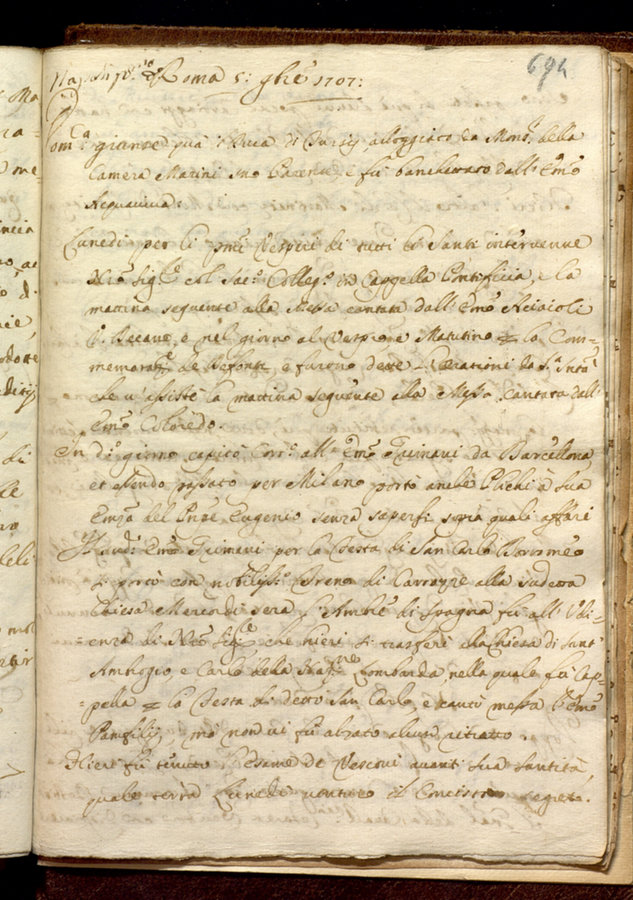 694
Roma 5: 9bre 1707:
Dom.ca giunse quà il Duca di alloggiato da Mons.r della
Camera Marini suo Parente, e fù banchettato dall' Em.o
Acquaviva.
Lunedì per li pmi Vesperi di tutti li Santi intervenne
Nro Sig.re col Sac.o Colleg.o in Cappella Pontificia, e la
mattina seguente alla Messa cantata dall' Em.o Aciaioli
Decano, e nel giorno al Vespro, e Matutino la Com=
memorat.ne de Defonti, e furono dette Orationi da S.
che v' assistè la mattina seguente alla Messa cantata dall'
Em.o Coloredo.
In d.o giorno capitò Corr.o all' Em.o Grimani da Barcellona,
et essendo passato per Milano portò anche Plichi à Sua
Em.za del Pnpe Eugenio senza sapersi sopra quali affari
Il sud.o Em.o Grimani per la Festa di San Carlo Borromeo
si portò con nobiliss.o Treno di Carrozze alla sudetta
Chiesa Mercordì sera, l'Ambre di Spagna fù all' Udi=
enza di Nro Sig.re che hieri si trasferì alla Chiesa di Sant'
Ambrogio, e Carlo della Nat.ne Lombarda, nella quale fù Cap=
=pella la Festa di detto San Carlo, e cantò messa l'Em.o
Panfilij, mà non vi fù alzato alcun ritratto.
Hieri fù tenuto l'esame de Vescovi avanti Sua Santità,
quale terrà Lunedì venturo il Concistoro segreto.